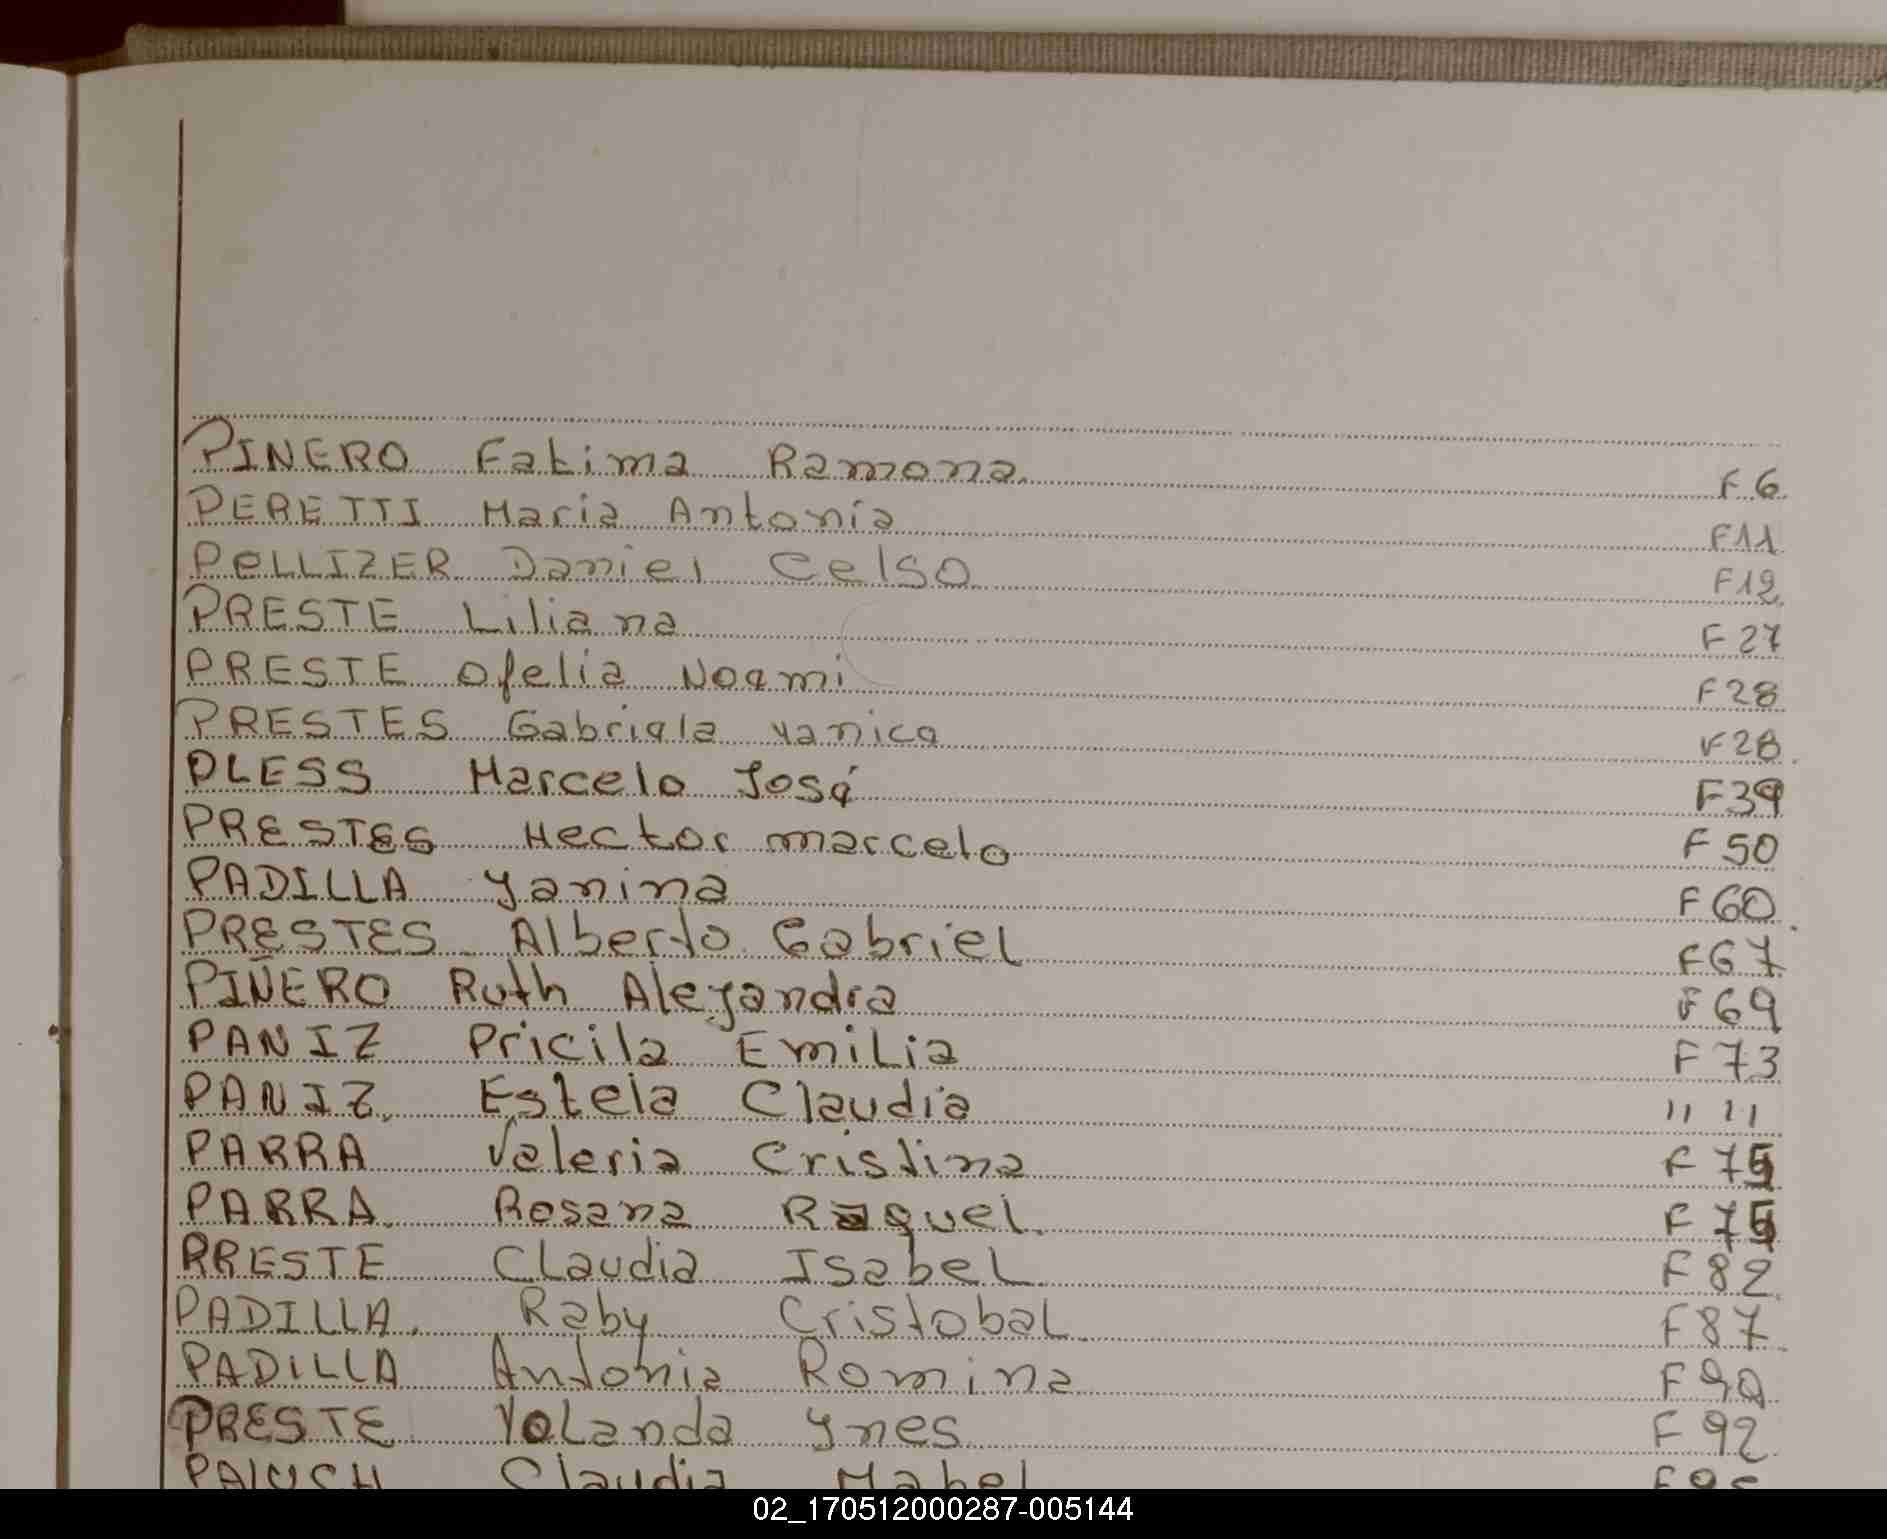 PINERO Fatima Ramona. F 6
PERETTI Maria Antonia F11
PELLIZER Daniel Celso F12
PRESTE Liliana F 27
PRESTE Ofelia Noemi F28
PRESTES Gabriela Yanica F28
PLESS Marcelo José F39
PRESTES Hector marcelo F 50
PADILLA Yanina F 60
PRESTES Alberto Gabriel F67
PIÑERO Ruth Alejandra F 69
PANIZ Pricila Emilia F 73
PANIZ. Estela Claudia " "
PARRA Valeria Cristina F 75
PARRA. Rosana Raquel. F 75
PRESTE Claudia Isabel F 82
PADILLA. Raby Cristobal F 87
PADILLA Antonia Romina F 90
PRESTE Yolanda Ynes F 92
Claudia Mabel
02_170512000287-005144